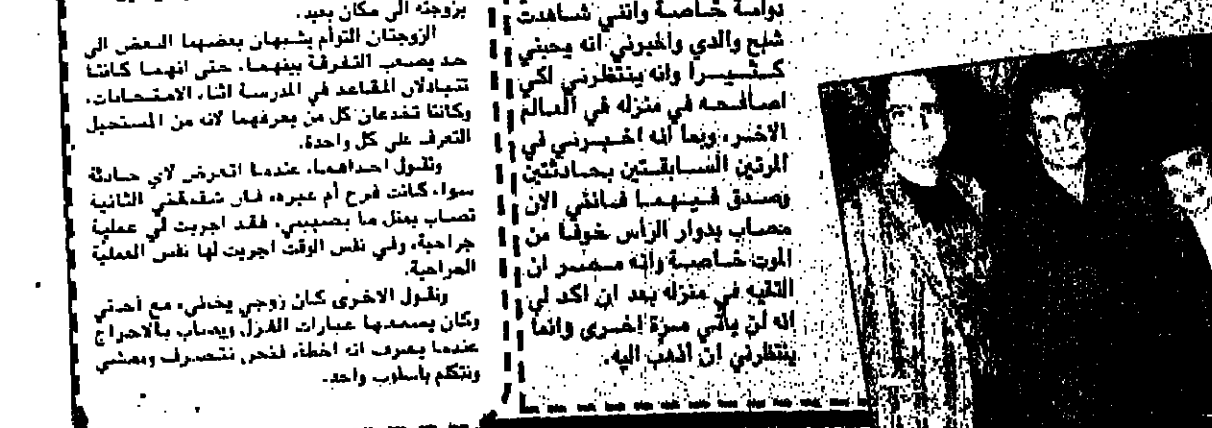 دوامة خاصة وانني شاهدت
شبح والدي واخبرني انه يحبني
كثيرا وانه ينتظرني لكي
اصافحه في منزله في العالم
الاخر، وبما انه اخبرني في
المرتين السابقتين بحادثتين
وصدق فيهما فانني الان
مصاب بدوار الرأس خوفا من
الموت خاصة وانه مصر ان
التقيه في منزله بعد ان اكد لي
انه لن يأتي مرة اخرى وانما
ينتظرني ان اذهب اليه.
بزوجته الى مكان بعيد.
الزوجتان التوأم يشبهان بعضهما البعض الى
حد يصعب التفرقة بينهما، حتى انهما كانتا
تتبادلان المقاعد في المدرسة اثناء الامتحانات،
وكانتا تخدعان كل من يعرفهما لانه من المستحيل
التعرف على كل واحدة.
وتقول احداهما، عندما اتعرض لاي حادثة
سواء كانت فرح أم غيره، فان شقيقتي الثانية
تصاب بمثل ما يصيبني، فقد اجريت لي عملية
جراحية، وفي نفس الوقت اجريت لها نفس العملية
الجراحية.
وتقول الاخرى كان زوجي يخطىء مع اختي
وكان يسمعها عبارات الغزل ويصاب بالاحراج
عندما يعرف انه اخطأ، فنحن نتصرف ونمشي
ونتكلم باسلوب واحد.